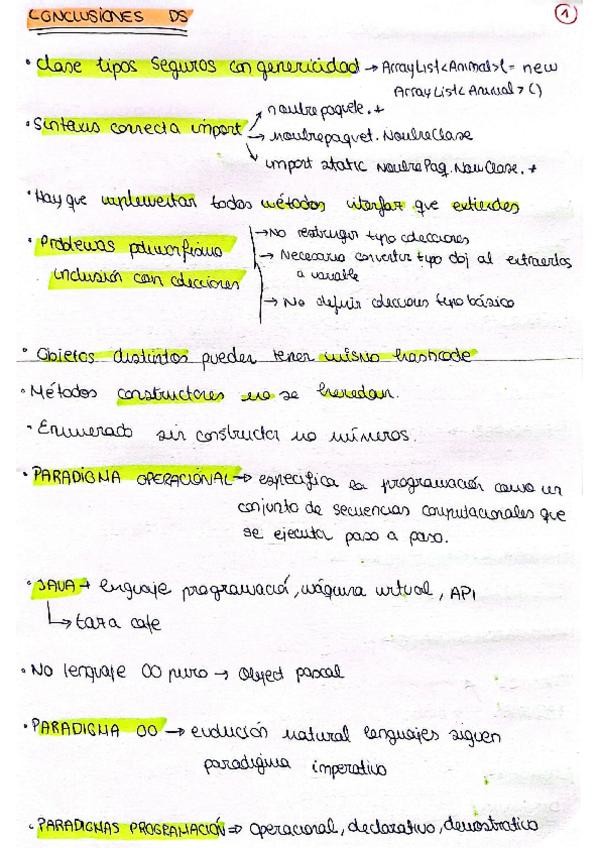 CONCLUSIONES DS
1
· Clase tipos seguros con genericidad → ArrayList<Animal>l = new
ArrayList<Animal>()
nombrepaquete.*
· Sintaxis correcta import → nombrepaquet.NombreClase
import static NombrePag.NomClase.*
· Hay que implementar todos métodos interfaz que extiendes
→ No restringir tipo colecciones
· Problemas polimorfismo → Necesario convertir tipo obj al extraerlos
a variable
inclusión con colecciones
→ No definir colecciones tipo básico
· Objetos distintos pueden tener mismo hashcode
· Métodos constructores no se heredan.
· Enumerado sin constructor no números.
· PARADIGMA OPERACIONAL → especifica la programación como un
conjunto de secuencias computacionales que
se ejecuta paso a paso.
· JAVA → lenguaje programació, máquina virtual, API
↳ taza cafe
· No lenguaje OO puro → Object pascal
· PARADIGMA OO → evolución natural lenguajes siguen
paradigma imperativo
· PARADIGMAS PROGRAMACIÓN ⇒ Operacional, declarativo, demostrativo